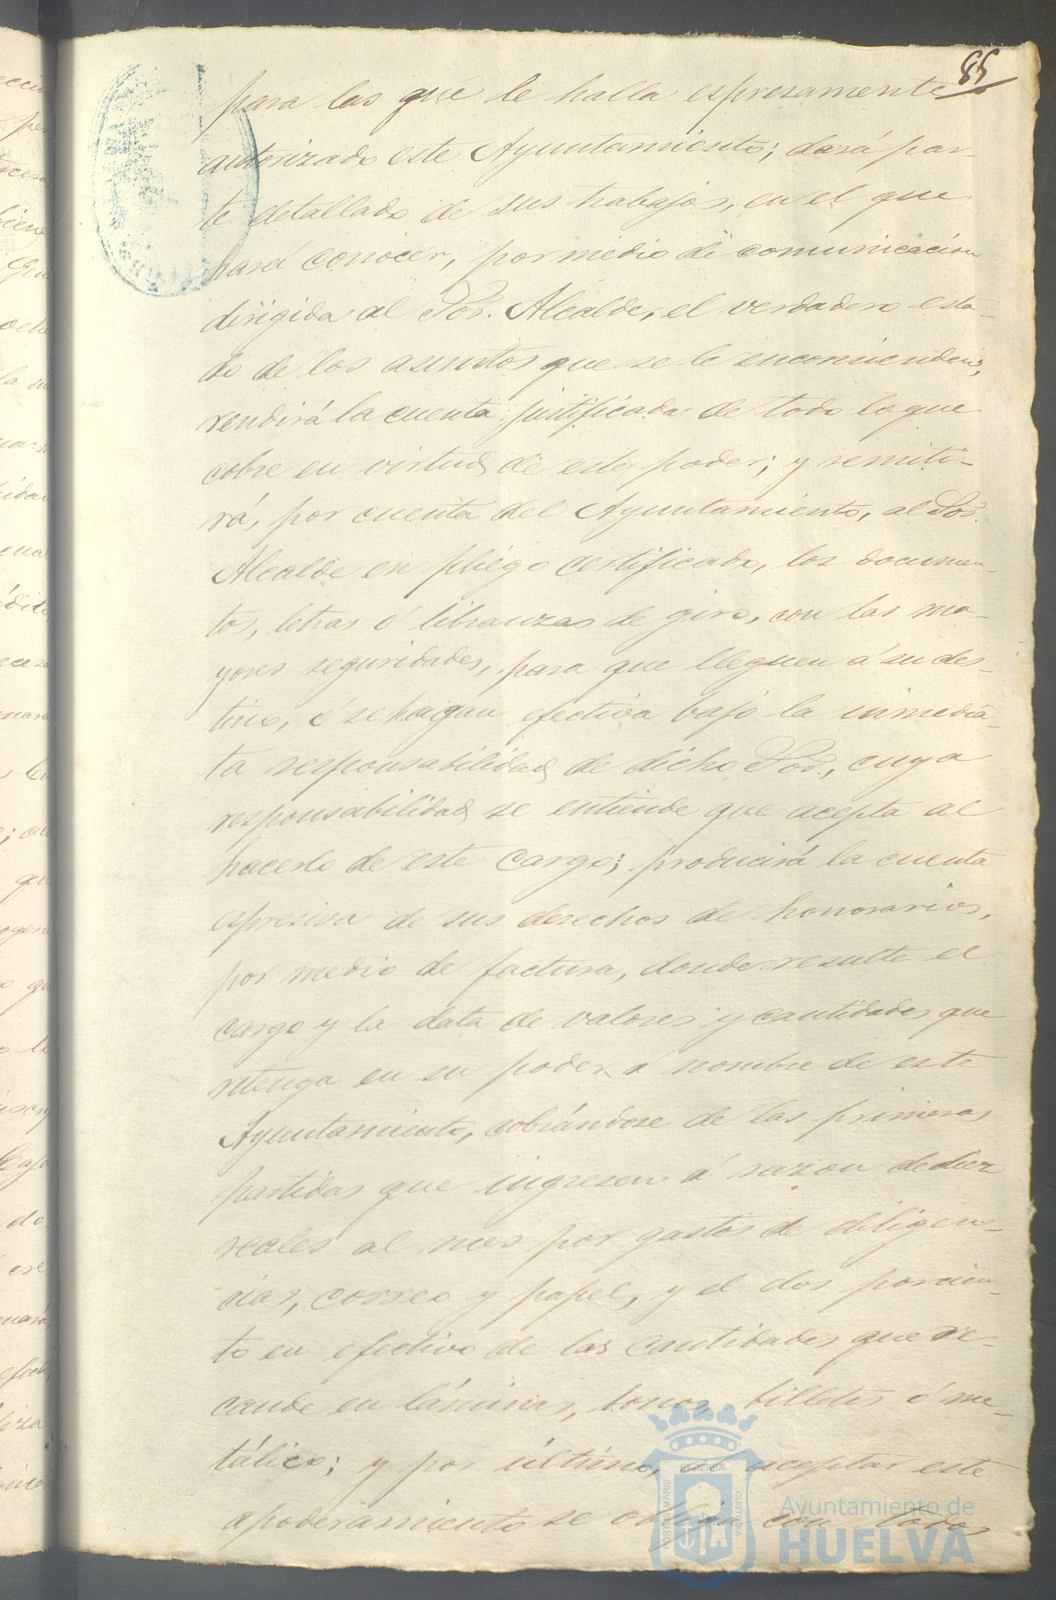 85
para las que le halla espresamente
autorizado este Ayuntamiento; dará par-
te detallado de sus trabajos, en el que
hará conocer, por medio de comunicacion
dirigida al Sor. Alcalde, el verdadero esta-
do de los asuntos que se le encomienden;
rendirá la cuenta justificada de todo lo que
cobre en virtud de este poder; y remiti-
rá, por cuenta del Ayuntamiento, al Sor.
Alcalde en pliego certificado, los documen-
tos, letras ó libranzas de giro, con las ma-
yores seguridades, para que lleguen á su des-
tino, ó se hagan efectiva bajo la inmedia-
ta responsabilidad de dicho Sor., cuya
responsabilidad se entiende que acepta al
hacerlo de este cargo; producirá la cuenta
espresiva de sus derechos de honorarios,
por medio de factura, donde resulte el
cargo y la data de valores y cantidades que
retenga en su poder á nombre de este
Ayuntamiento, cobrándose de las primeras
partidas que ingresen á razon de diez
reales al mes por gastos de diligen-
cias, correo y papel, y el dos porcien-
to en efectivo de las cantidades que re-
caude en láminas, bonos, billetes ó me-
tálico; y por último, al aceptar este
apoderamiento se obliga con todos
Ayuntamiento de
HUELVA